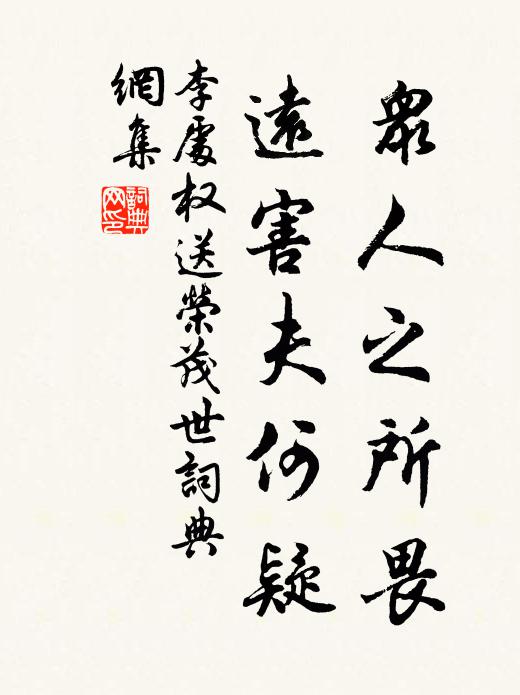 眾人之所畏
遠害夫何疑
李處权送榮茂世詞典
網集
詞典
网印